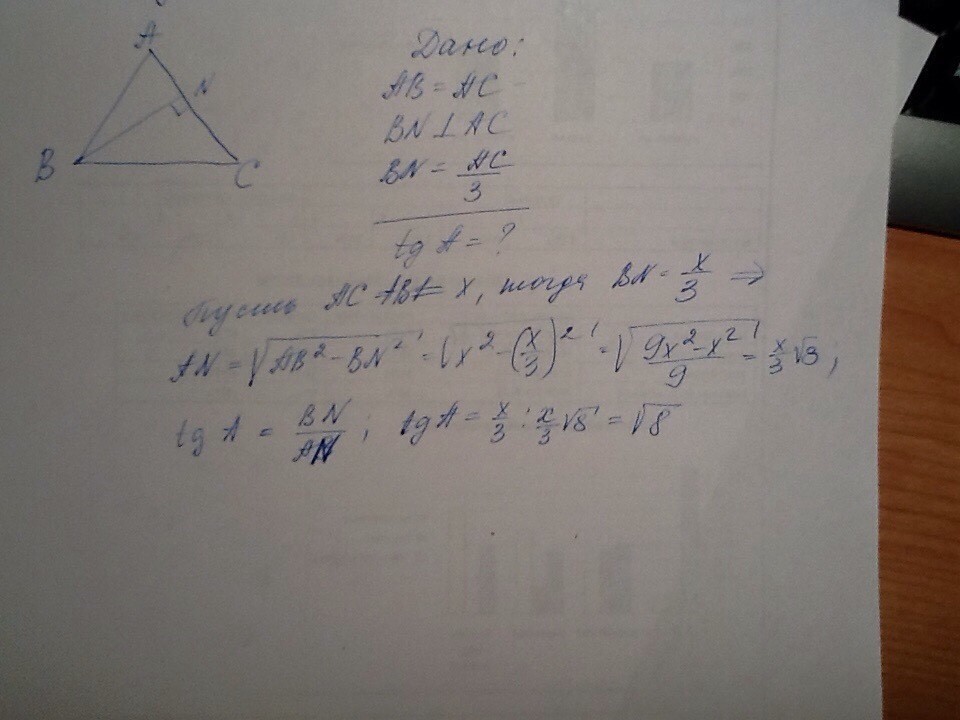 A
N
B
C
Дано:
AB = AC
BN ⊥ AC
BN = AC/3
tg A = ?
Пусть AC = AB = x, тогда BN = x/3 ⇒
AN = √(AB² - BN²) = √(x² - (x/3)²) = √((9x² - x²)/9) = x/3 √8;
tg A = BN/AN; tg A = x/3 : x/3 √8 = √8